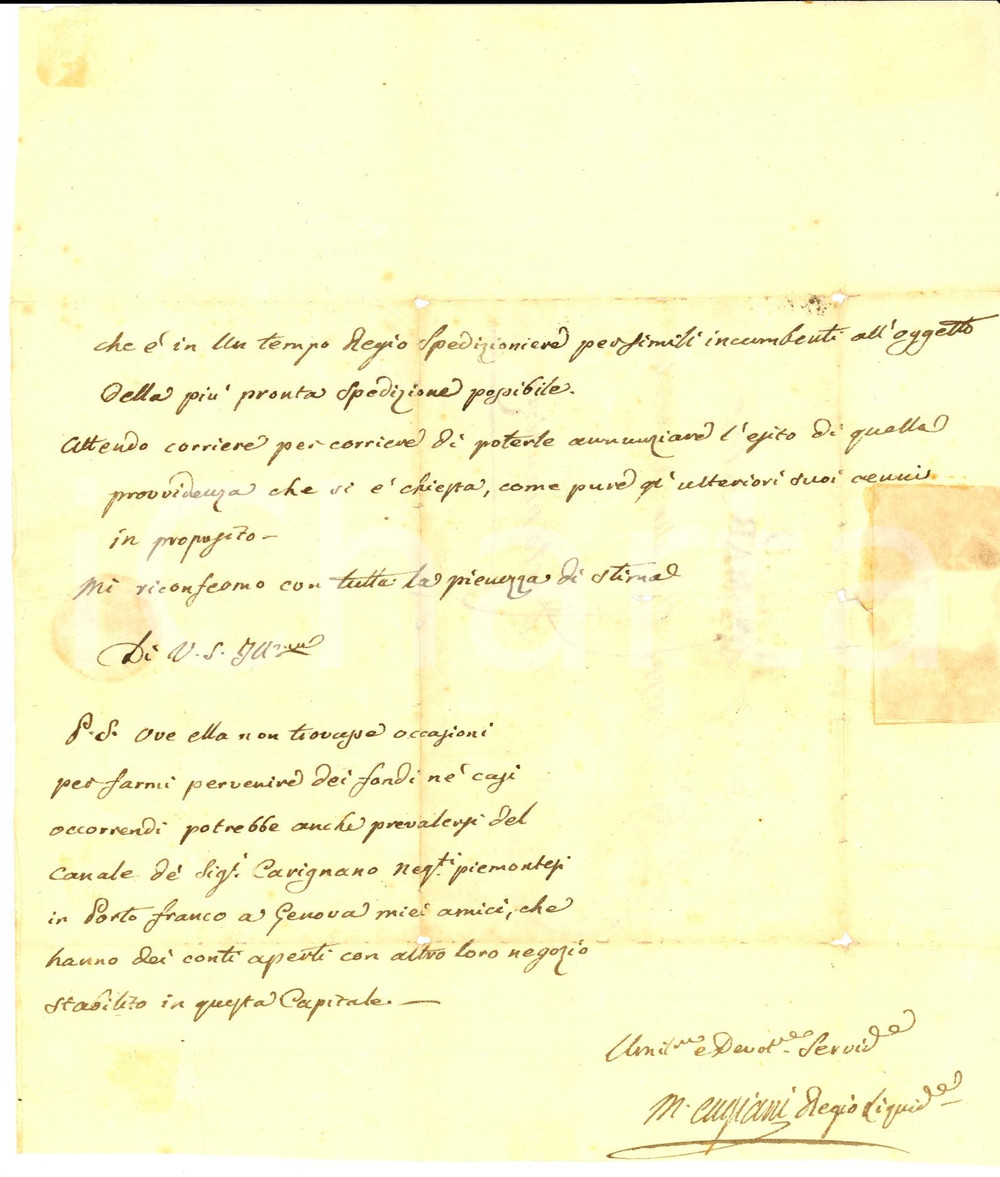 che é in Un tempo Regio Spedizioniere per simili incumbenti all'oggetto
della più pronta Spedizione possibile.
Attendo corriere per corriere di poterle annunziare l'esito di quella
provvidenza che si é chiesta, come pure gl'ulteriori suoi cenni
in proposito -
Mi riconfermo con tutta la pienezza di stima
Di V. S. Ill.ma
P.S. Ove ella non trovasse occasioni
per farmi pervenire dei fondi ne' casi
occorrendi potrebbe anche prevalersi del
canale de' Sig.i Carignano Neg.ti piemontesi
in Porto franco a Genova miei amici, che
hanno dei conti aperti con altro loro negozio
stabilito in questa Capitale. —
Umil.mo e Devot.mo Servid.e
M. Regio Liquid.e